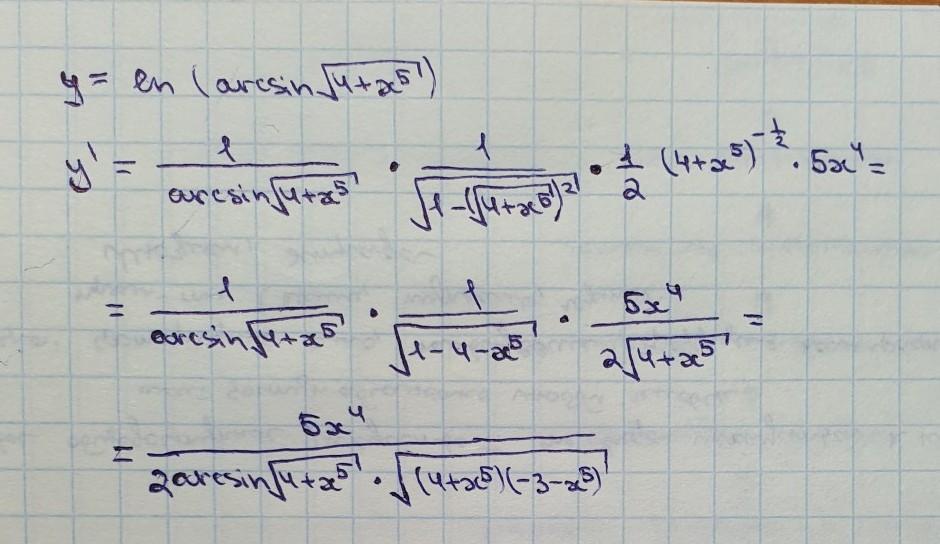 y = ln (arcsin√(4+x⁵))
y' = 1/(arcsin√(4+x⁵)) · 1/√(1-(√(4+x⁵))²) · 1/2 (4+x⁵)^(-1/2) · 5x⁴ =
= 1/(arcsin√(4+x⁵)) · 1/√(1-4-x⁵) · 5x⁴/(2√(4+x⁵)) =
= 5x⁴/(2arcsin√(4+x⁵) · √((4+x⁵)(-3-x⁵)))